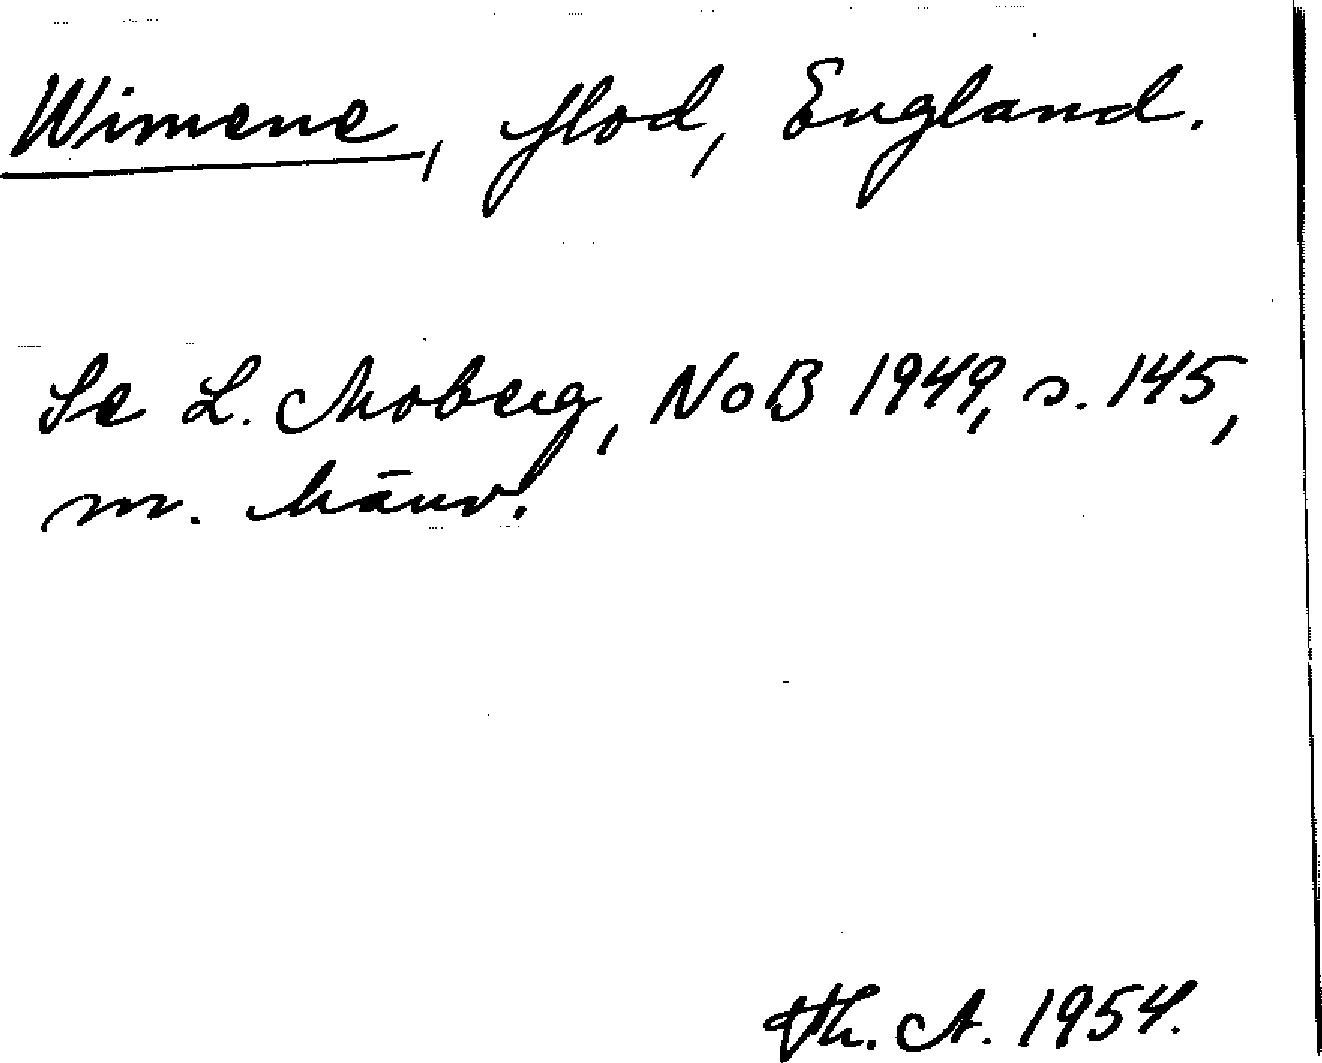 Wimene, flod, England.
Se L. Moberg, NoB 1949, s. 145,
m. hänv.
Th. A. 1954.